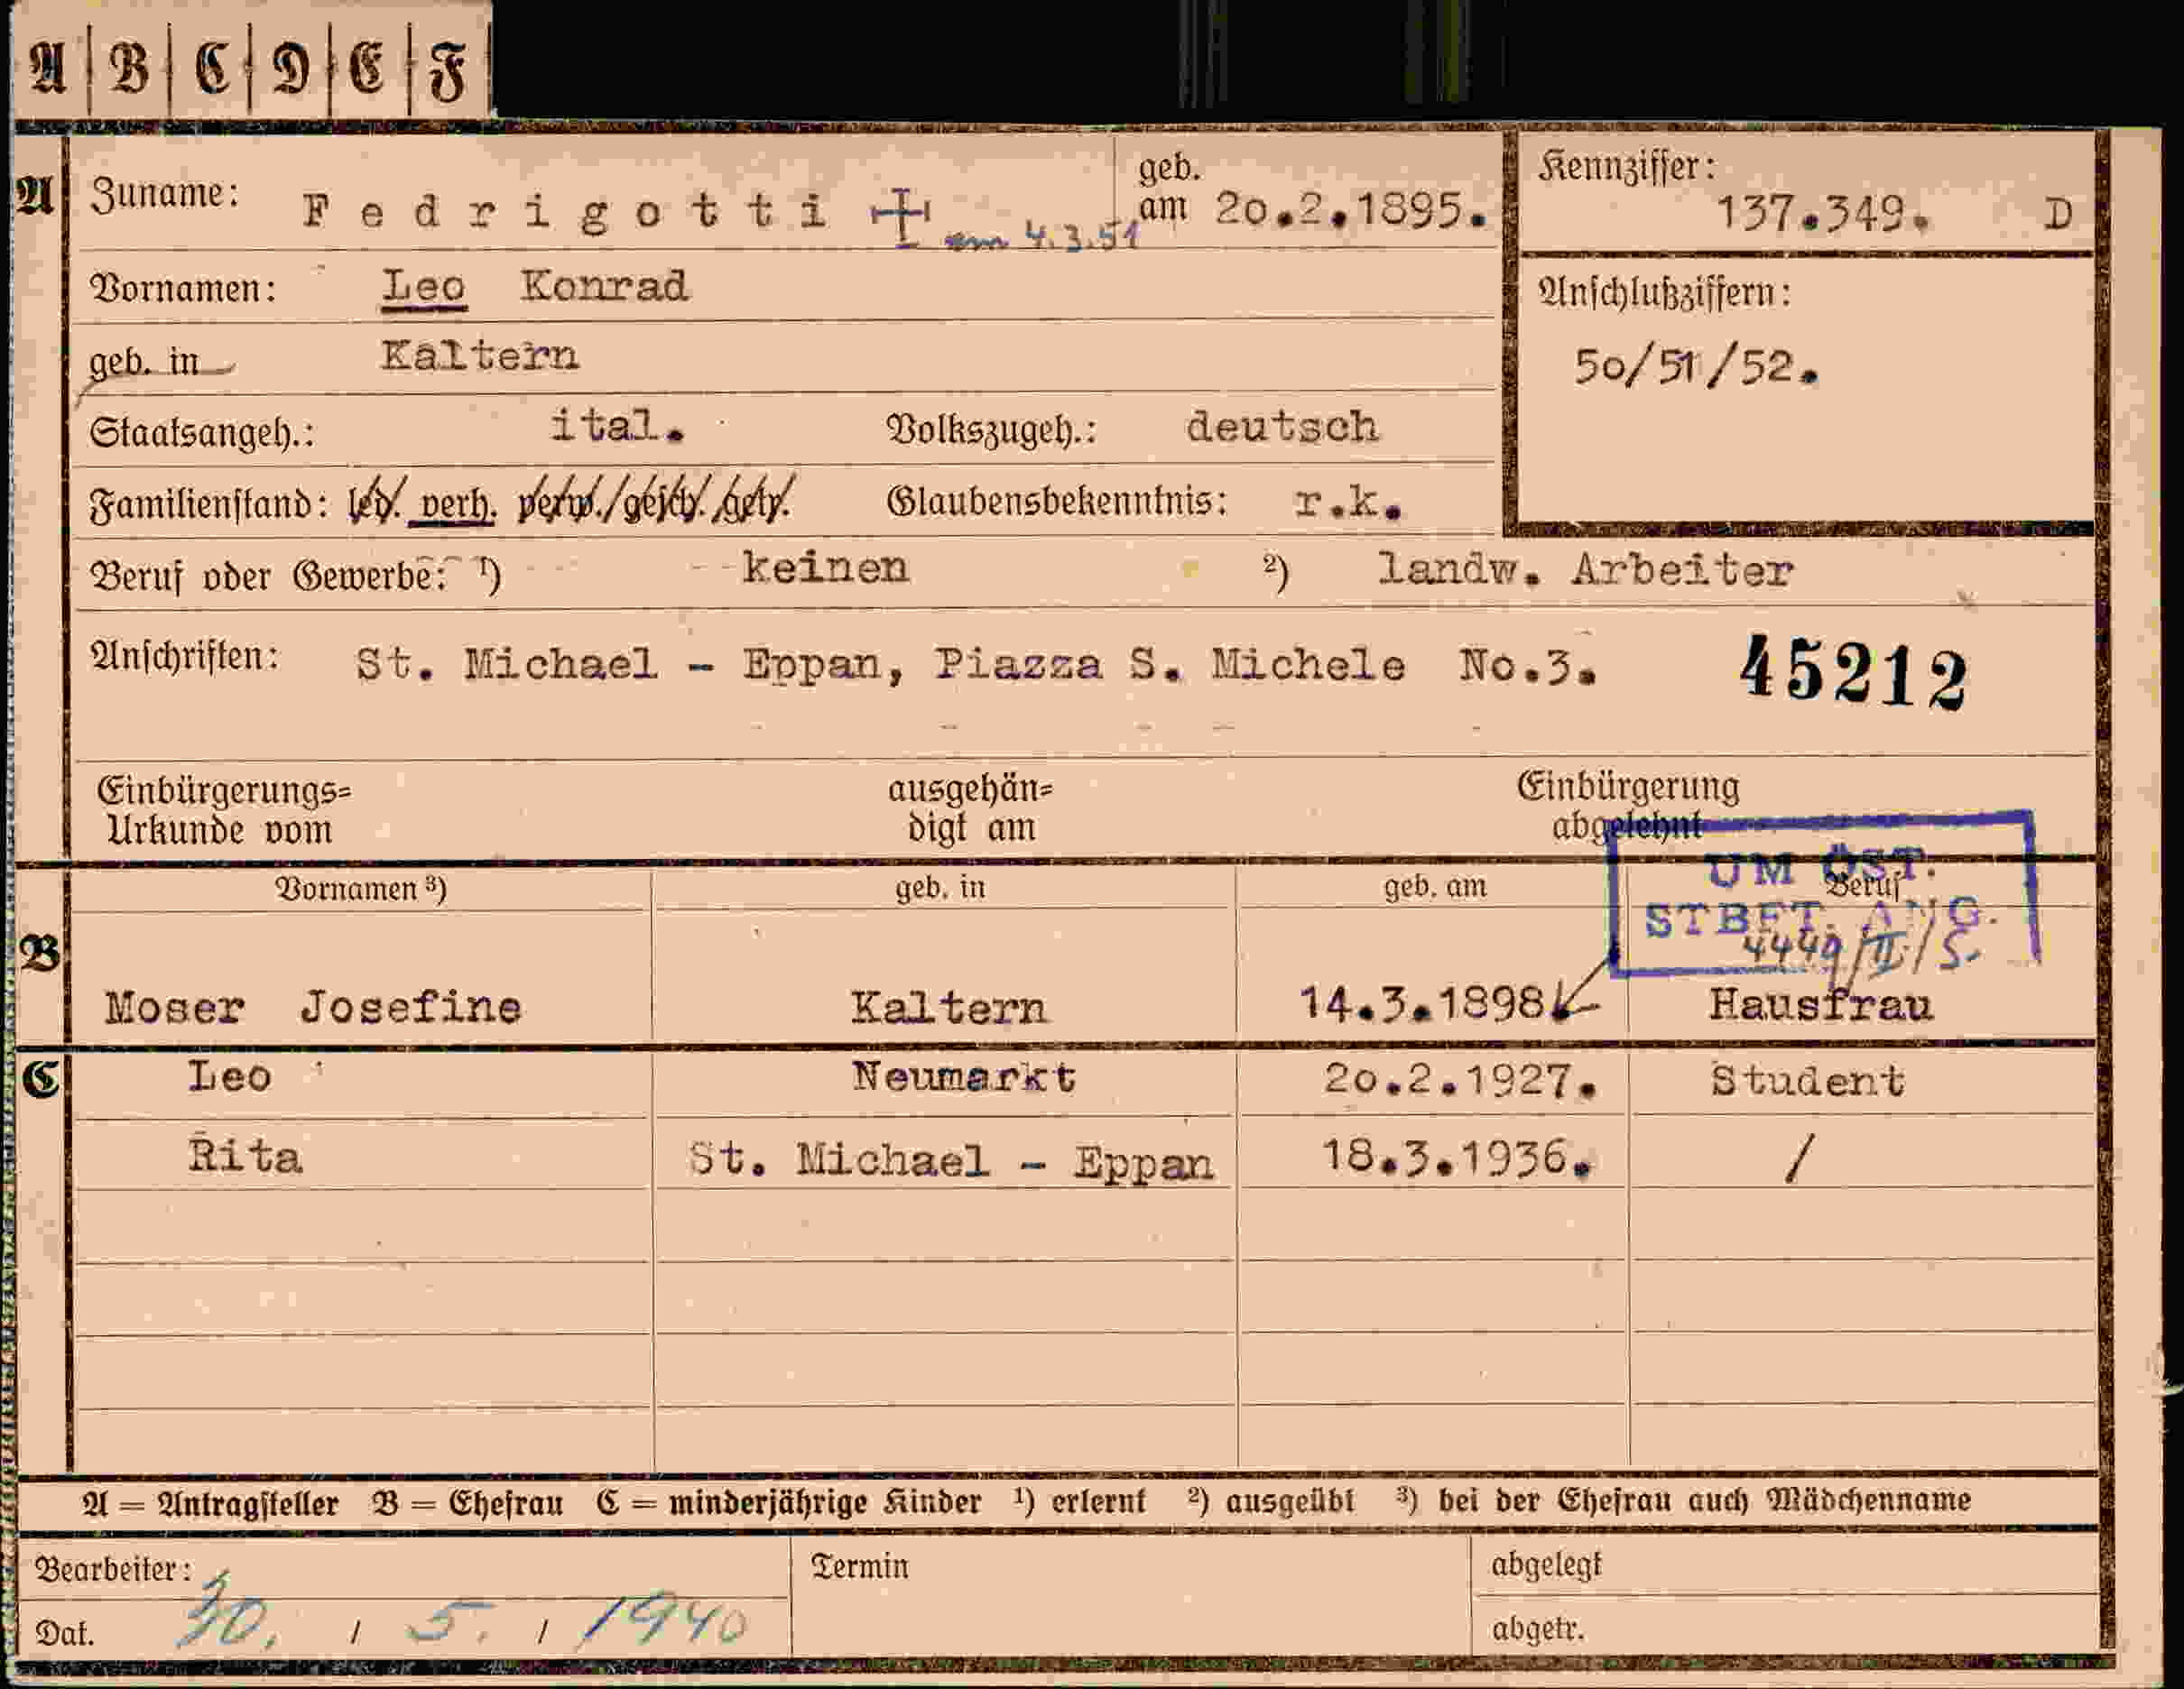 A B C D E F
A Zuname: Fedrigotti + am 4.3.51 geb. am 20.2.1895. Kennziffer: 137.349. D
Vornamen: Leo Konrad Anschlußziffern:
geb. in Kaltern 50/51/52.
Staatsangeh.: ital. Volkszugeh.: deutsch
Familienstand: led. verh. verw./gesch./getr. Glaubensbekenntnis: r.k.
Beruf oder Gewerbe: 1) keinen 2) landw. Arbeiter
Anschriften: St. Michael - Eppan, Piazza S. Michele No.3. 45212
Einbürgerungs= ausgehän= Einbürgerung
Urkunde vom digt am abgelehnt
UM ÖST.
Vornamen 3) geb. in geb. am Beruf
STBFT. ANG.
4449/II/S.
B Moser Josefine Kaltern 14.3.1898 Hausfrau
C Leo Neumarkt 20.2.1927. Student
Rita St. Michael - Eppan 18.3.1936. /
A = Antragsteller B = Ehefrau C = minderjährige Kinder 1) erlernt 2) ausgeübt 3) bei der Ehefrau auch Mädchenname
Bearbeiter: Termin abgelegt
Dat. 30. / 5. / 1940 abgetr.